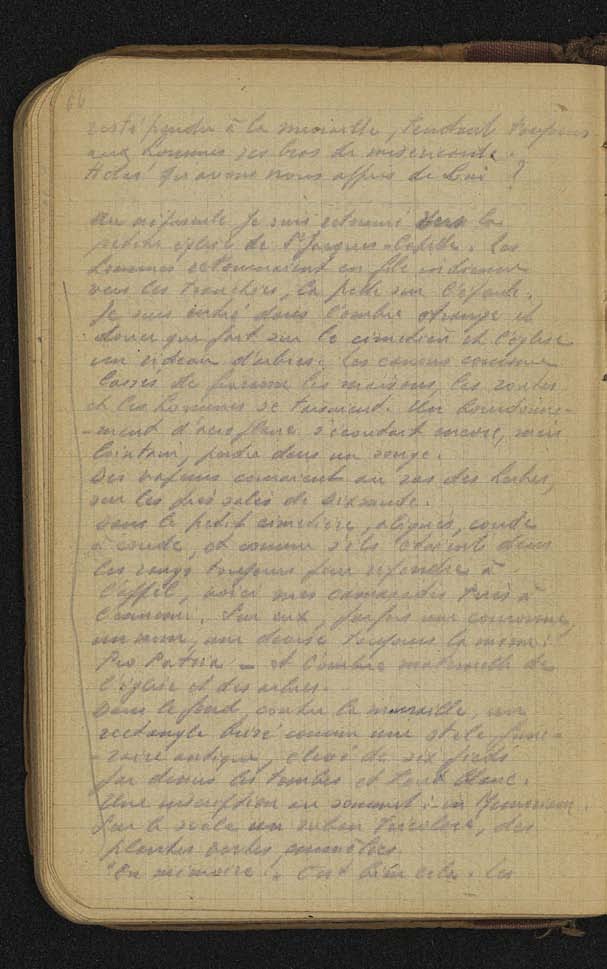 66
resté pendu à la muraille, tendant toujours
aux hommes ses bras de miséricorde.
qu'avons nous appris de Lui ?
Au crépuscule je suis retourné vers la
petite église de St Jacques-Capelle. Les
hommes retournaient en file indienne
vers les tranchées, la pelle sur l'épaule.
Je suis entré dans l'ombre étrange et
douce que fait sur le cimetière et l'église
un rideau d'arbres. Les canons comme
lassés de les maisons, les routes
et les hommes se taisaient. Un bourdonne-
-ment d'aéroplane s'écoutait encore, mais
lointain, perdu dans un songe.
Des vapeurs couraient au ras des herbes,
sur les prés salés de Dixmude.
Dans le petit cimetière, alignés, coude
à coude, et comme s'ils étaient dans
les rangs toujours pour répondre à
l'appel, voici mes camarades tués à
l'ennemi. Sur eux, parfois une couronne,
un nom, une devise toujours la même :
Pro Patria – et l'ombre maternelle de
l'église et des arbres.
Dans le fond, contre la muraille, un
rectangle comme une stèle funé-
-raire antique, élevé de six pieds
par dessus les tombes et tout blanc.
Une inscription au sommet : in Memoriam.
Sur le socle un ruban tricolore, des
plantes vertes
"En mémoire". C'est bien cela. Les